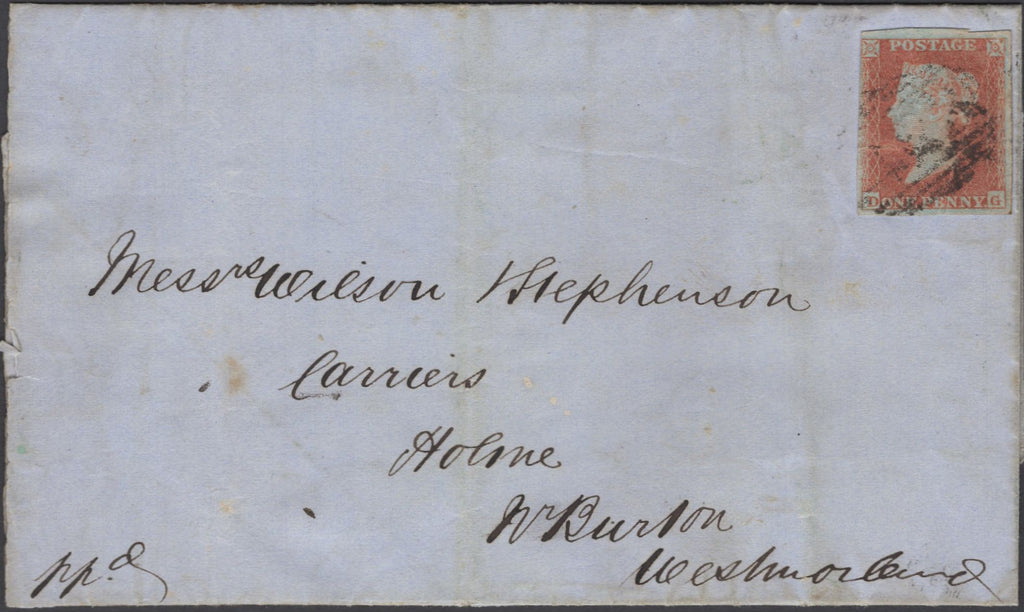 POSTAGE
D ONE PENNY G
Messrs Wilson & Stephenson
Carriers
Holme
Nr Burton
Westmorland
ppd